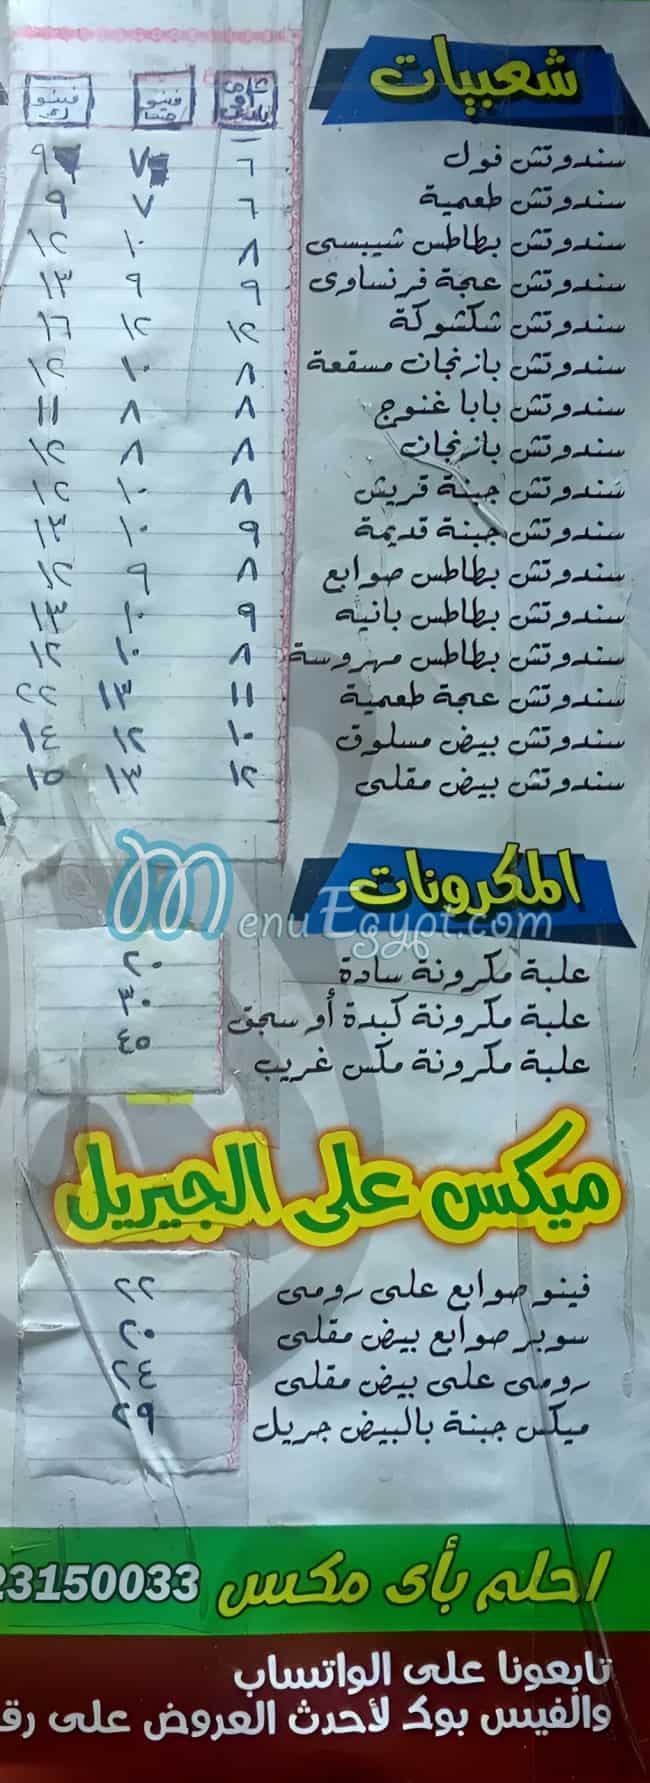 شعبيات
شامى أو بلدى فينو
سندوتش فول ٦ ٧ ٩
سندوتش طعمية ٦ ٧ ٩
سندوتش بطاطس شيبسى ٨ ١٠ ١٢
سندوتش عجة فرنساوى ٩ ٩ ١٣
سندوتش شكشوكة ١٢ ١٢ ١٦
سندوتش بازنجان مسقعة ٨ ١٠ ١٢
سندوتش بابا غنوج ٨ ٨ ١١
سندوتش بازنجان ٨ ٨ ١٢
سندوتش جبنة قريش ٨ ١٠ ١٢
سندوتش جبنة قديمة ٩ ١٠ ١٣
سندوتش بطاطس صوابع ٨ ٩ ١٢
سندوتش بطاطس بانيه ٩ ١٠ ١٣
سندوتش بطاطس مهروسة ٨ ١٠ ١٢
سندوتش عجة طعمية ١١ ١٣ ٢٢
سندوتش بيض مسلوق ١٠ ١٢ ١٤
سندوتش بيض مقلى ١٢ ١٣ ١٥
المكرونات
MenuEgypt.com
علبة مكرونة سادة ٢٠
علبة مكرونة كبدة أو سجق ٣٠
علبة مكرونة مكس غريب ٤٥
ميكس على الجيريل
فينو صوابع على رومى ٢٢
سوبر صوابع بيض مقلى ٢٠
رومى على بيض مقلى ٢٤
ميكس جبنة بالبيض جريل ٢٩
احلم بأى مكس 23150033
تابعونا على الواتساب
والفيس بوك لأحدث العروض على رق